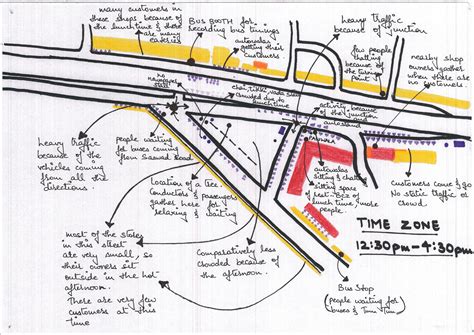 many customers in
these shops because of
the lunchtime & there
are many
eateries
BUS BOOTH for
recording bus timings
autowalas
getting their
customers
heavy traffic
because of
junction
few people
halting
because of
the turning
point
nearby shop
owners gather
when there are
no customers.
no
newspaper
stall
chai, tikki, vada stall
crowded due to
lunchtime
activity because
of the junction
autostand
heavy traffic
because of the
vehicles coming
from all the
directions.
people waiting
for buses coming
from Saswad Road
Location of a tree.
Conductors & passengers
gather here for
relaxing & waiting
autowalas
sitting & chatting
sitting space
lunch time more
people.
customers come & go
No static traffic or
crowd.
most of the stores
in this street
are very small, so
their owners sit
outside in the hot
afternoon.
There are very few
customers at this
time
Comparatively less
crowded because of
the afternoon.
TIME ZONE
12:30pm - 4:30pm
Bus Stop
(people waiting for
buses &